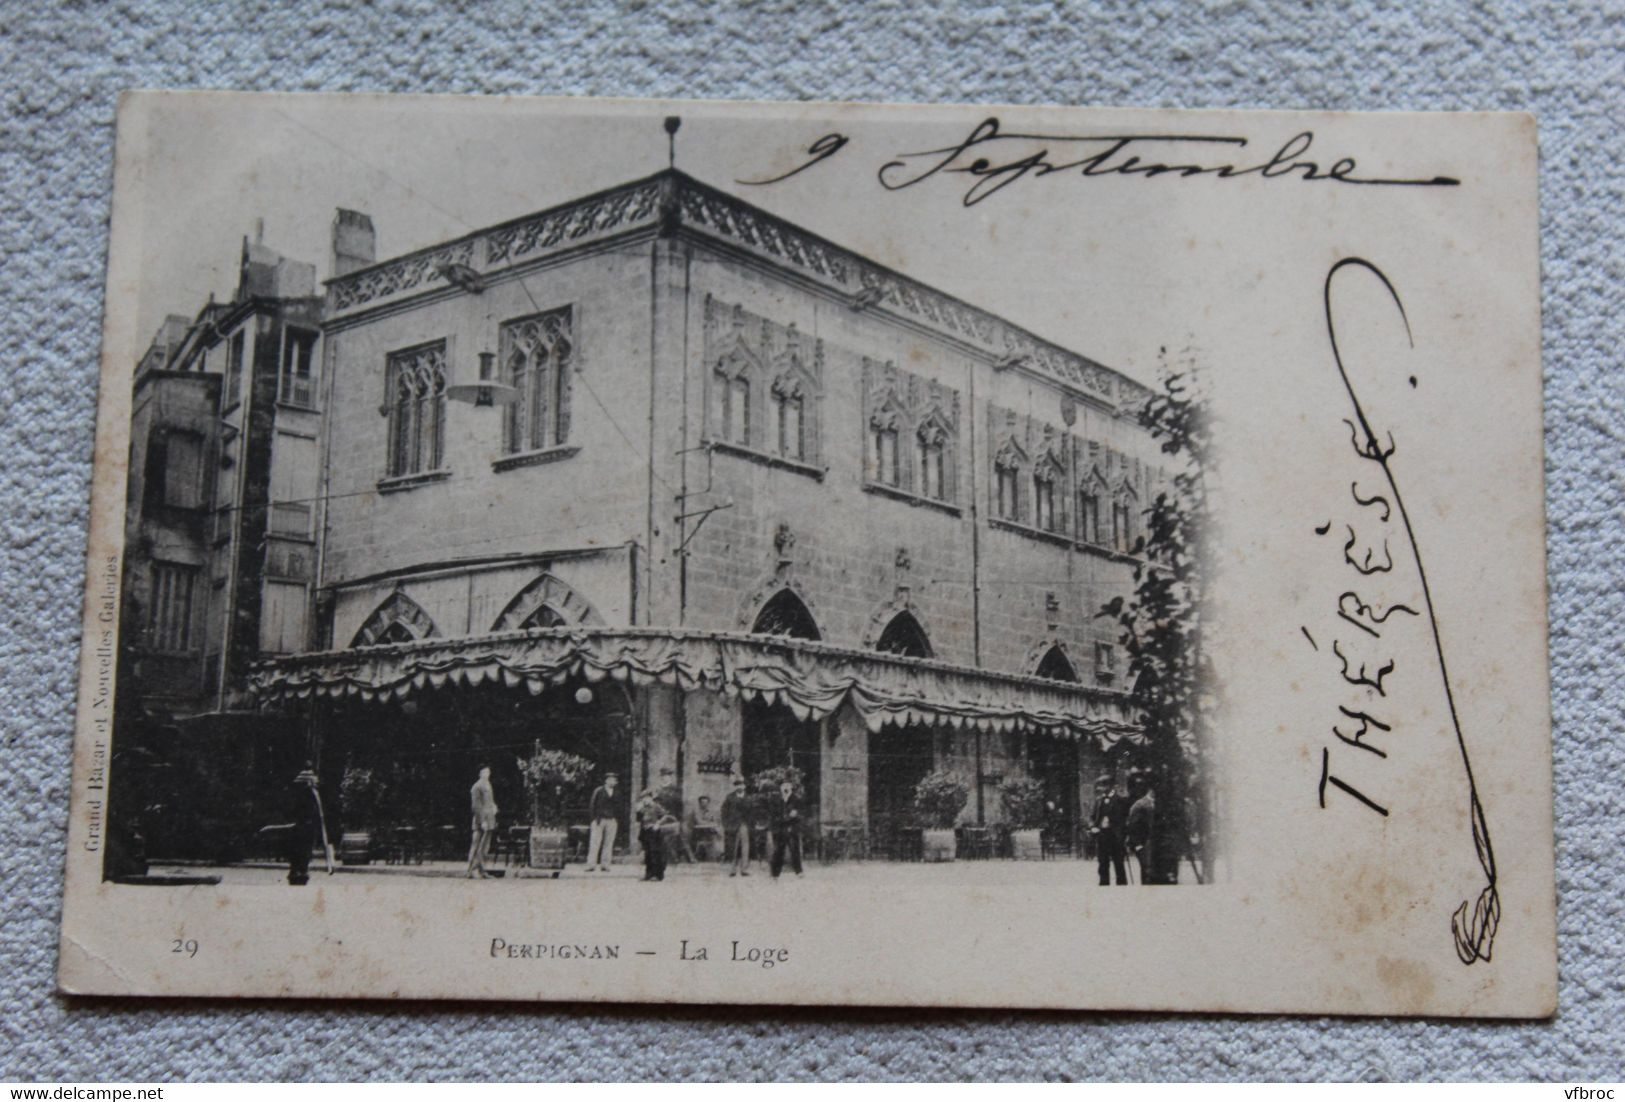 9 Septembre
THÉRÈSE.
Grand Bazar et Nouvelles Galeries
29
PERPIGNAN — La Loge
delcampe.net
vfbroc